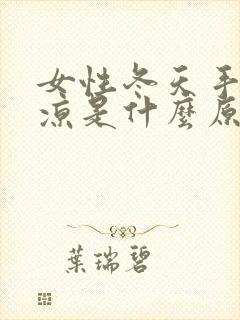 女性冬天手
涼是什麼原
葉瑞碧